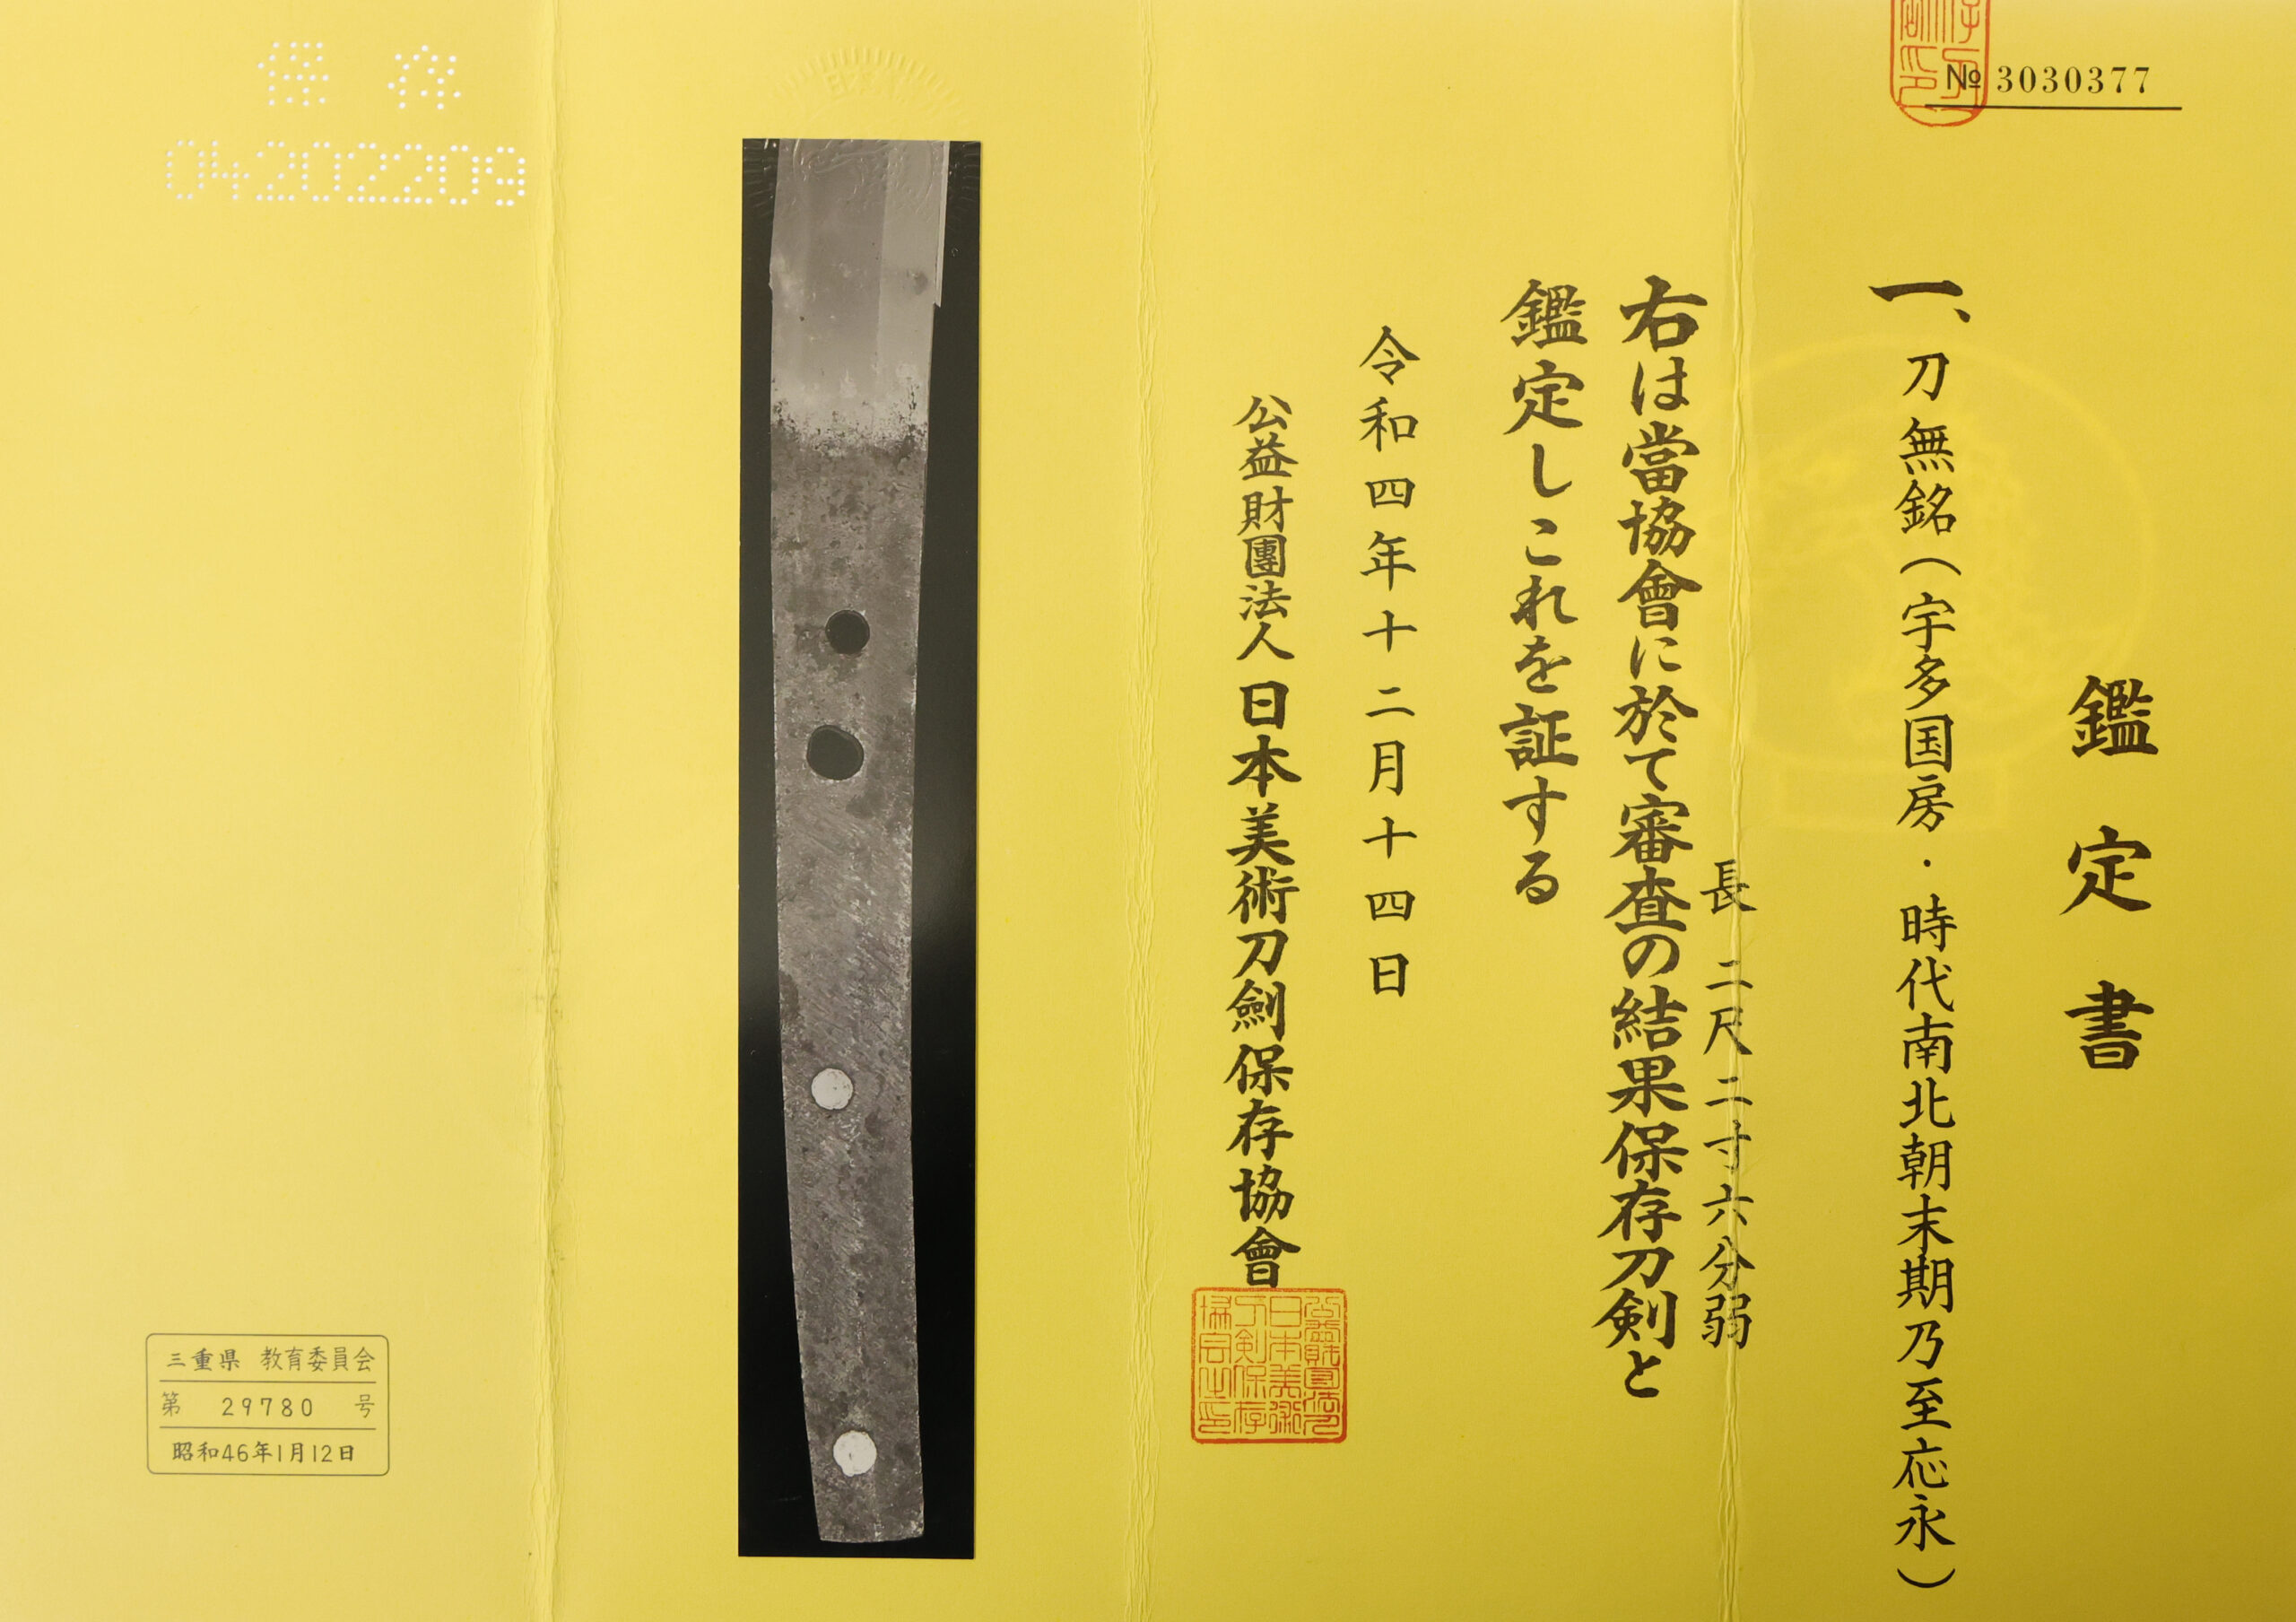 № 3030377
鑑定書
一、刀 無銘(宇多国房・時代南北朝末期乃至応永)
長 二尺二寸六分弱
右は當協會に於て審査の結果保存刀剣と
鑑定しこれを証する
令和四年十二月十四日
公益財團法人 日本美術刀劍保存協會
保存
04202209
三重県 教育委員会
第 29780 号
昭和46年1月12日